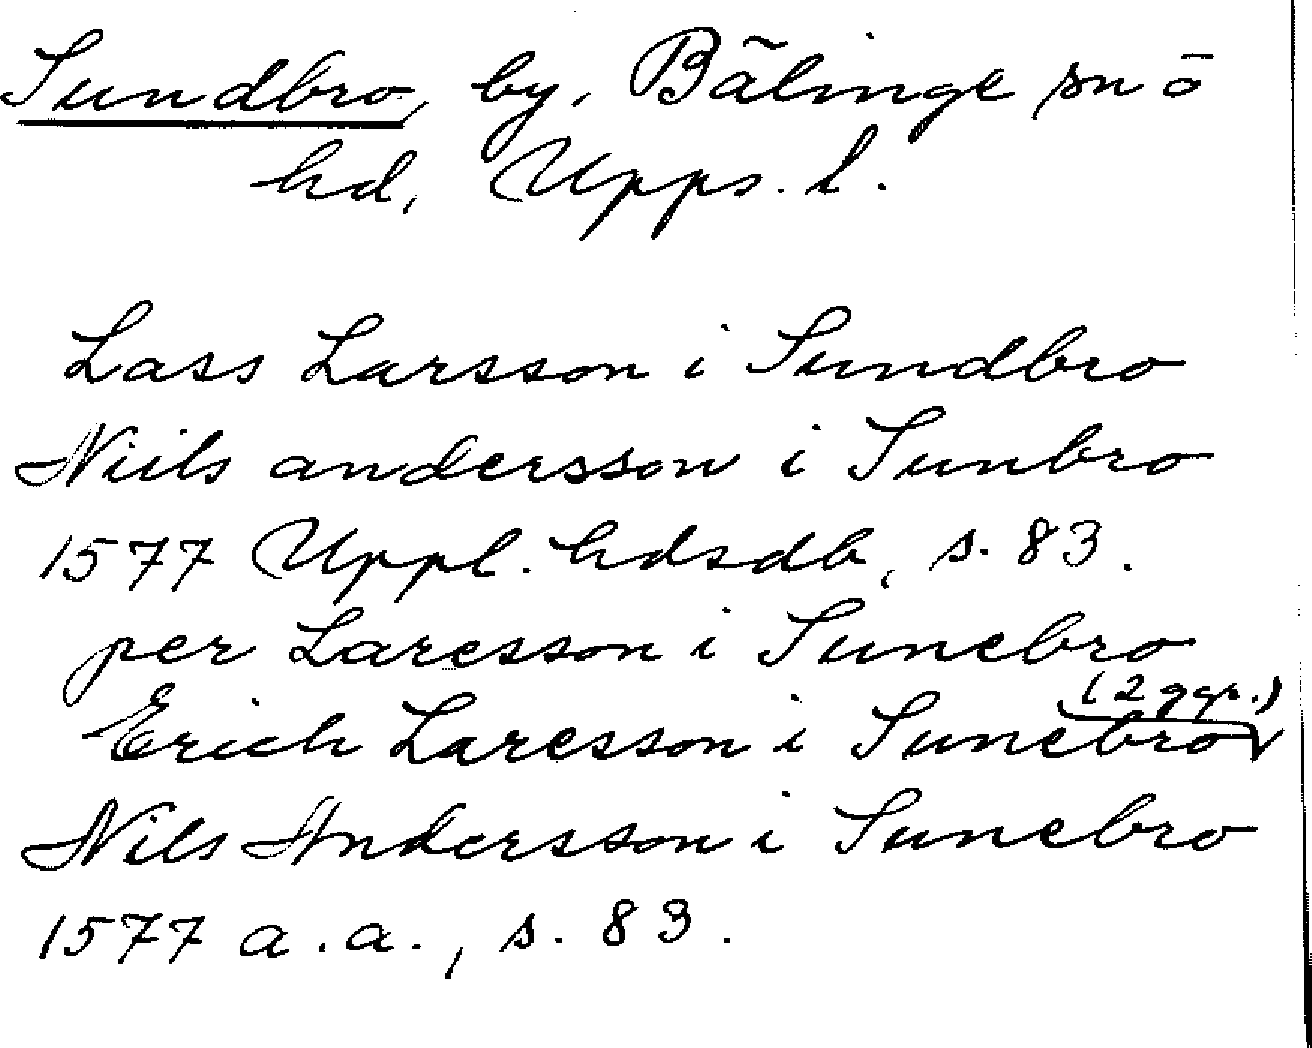 Sundbro, by, Bälinge sn o
hd, Upps. l.
Lass Larsson i Sundbro
Niils andersson i Sunbro
1577 Uppl. hdsdb, s. 83.
per Laresson i Sunebro
(2 ggr.)
Erich Laresson i Sunebro
Nils Andersson i Sunebro
1577 a.a., s. 83.